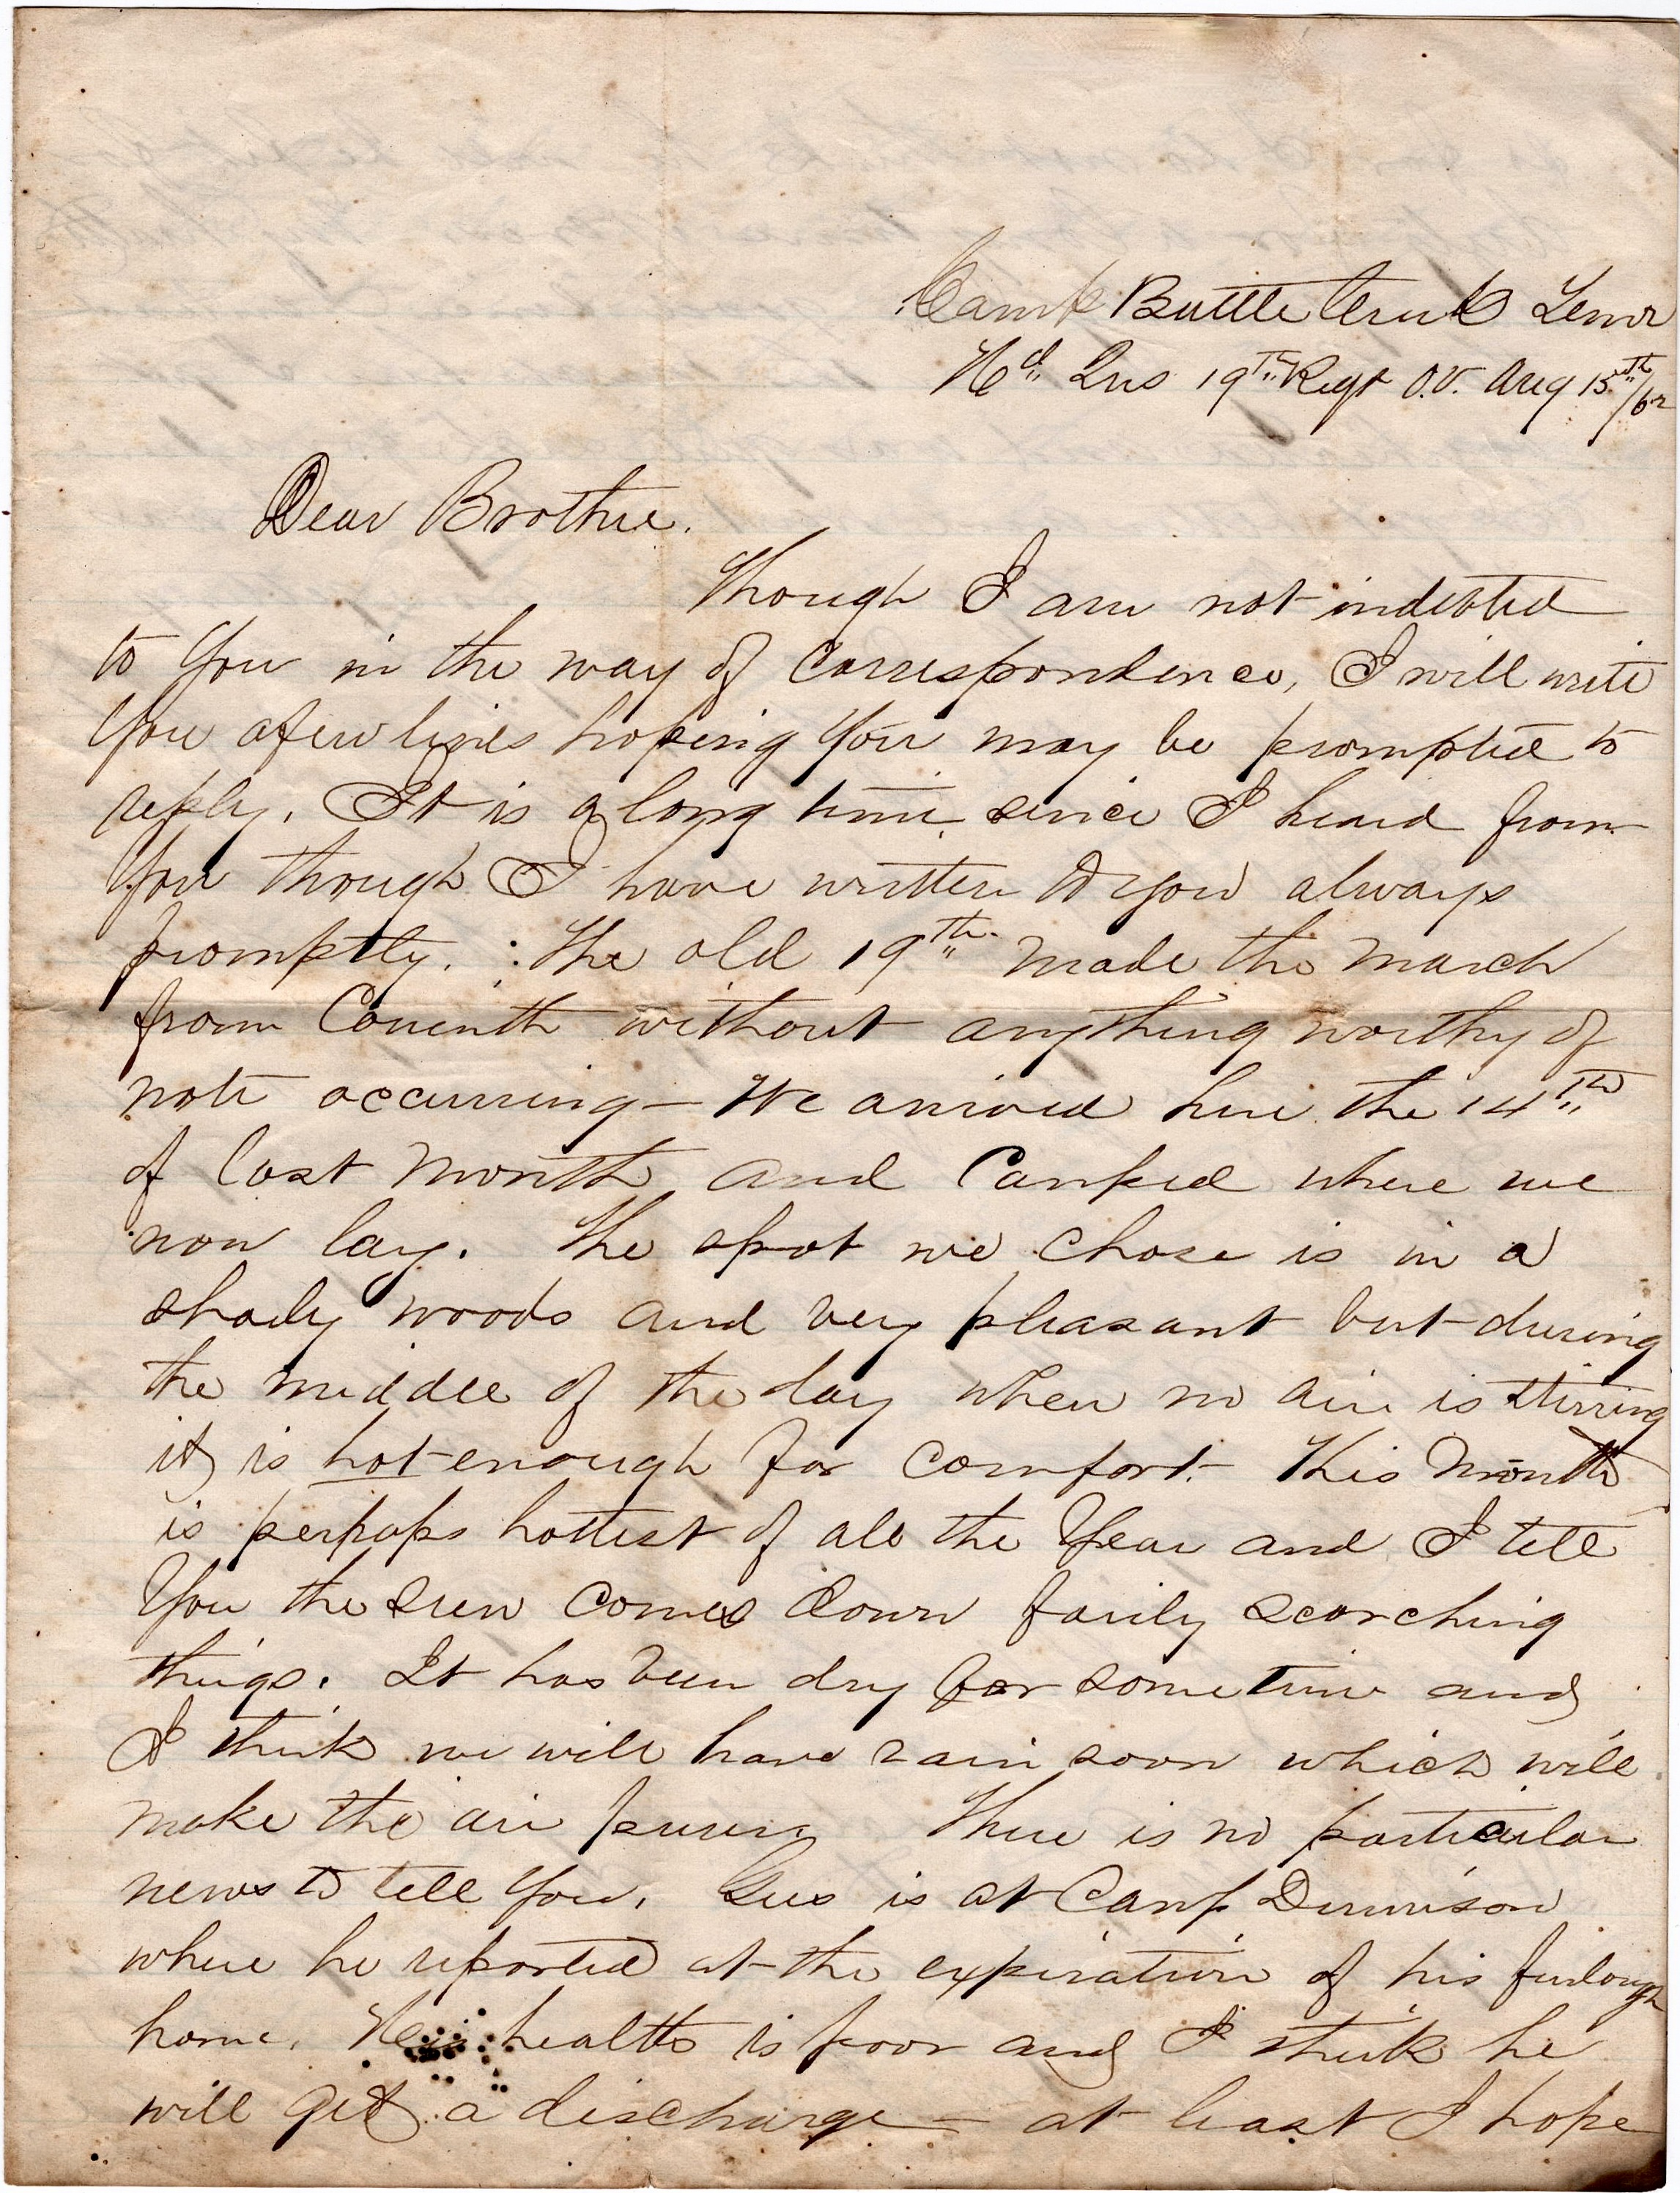 Camp Battle Creek Tenn
Hd. Qrs 19th Regt O.V. Aug 15th/62
Dear Brother.
Though I am not indebted
to You in the way of Correspondence, I will write
You a few lines hoping You may be prompted to
reply. It is a long time since I heard from
You though I have written to you always
promptly. The old 19th made the march
from Corinth without anything worthy of
note occurring — We arrived here the 14th
of last Month and Camped where we
now lay. The spot we chose is in a
shady woods and very pleasant but during
the middle of the day when no air is stirring
it is hot enough for comfort. This Month
is perhaps hottest of all the Year and I tell
You the sun comes down fairly scorching
things. It has been dry for some time and
I think we will have rain soon which will
make the air purer. There is no particular
news to tell You. Gus is at Camp Dennison
where he reported at the expiration of his furlough
home. His health is poor and I think he
will get a discharge — at least I hope